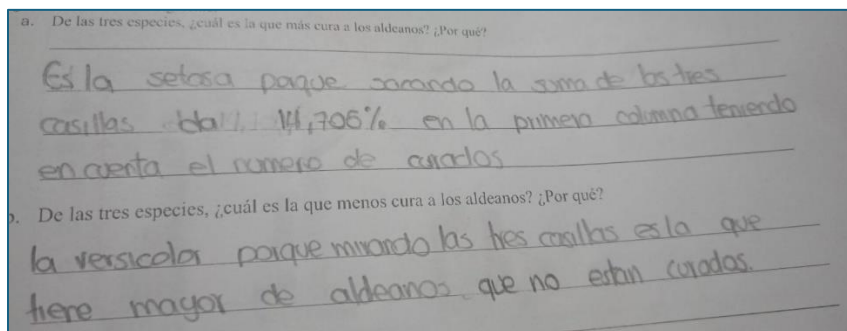 a. De las tres especies, ¿cuál es la que más cura a los aldeanos? ¿Por qué?
Es la setosa porque sumando la suma de las tres
casillas da 14,705% en la primera columna teniendo
en cuenta el numero de curados
b. De las tres especies, ¿cuál es la que menos cura a los aldeanos? ¿Por qué?
la versicolor porque mirando las tres casillas es la que
tiene mayor de aldeanos que no estan curados.